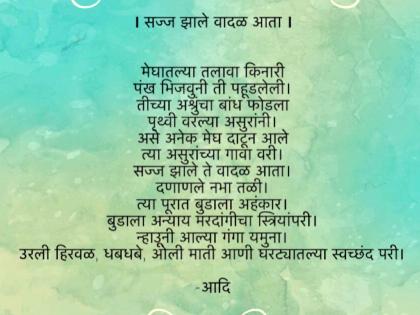 । सज्ज झाले वादळ आता ।
मेघातल्या तलावा किनारी
पंख भिजवुनी ती पहूडलेली।
तीच्या अश्रुंचा बांध फोडला
पृथ्वी वरल्या असुरांनी।
असे अनेक मेघ दाटून आले
त्या असुरांच्या गावा वरी।
सज्ज झाले ते वादळ आता।
दणाणले नभा तळी।
त्या पूरात बुडाला अहंकार।
बुडाला अन्याय मरदांगीचा स्त्रियांपरी।
न्हाऊनी आल्या गंगा यमुना।
उरली हिरवळ, धबधबे, ओली माती आणी घरट्यातल्या स्वच्छंद परी।
-आदि